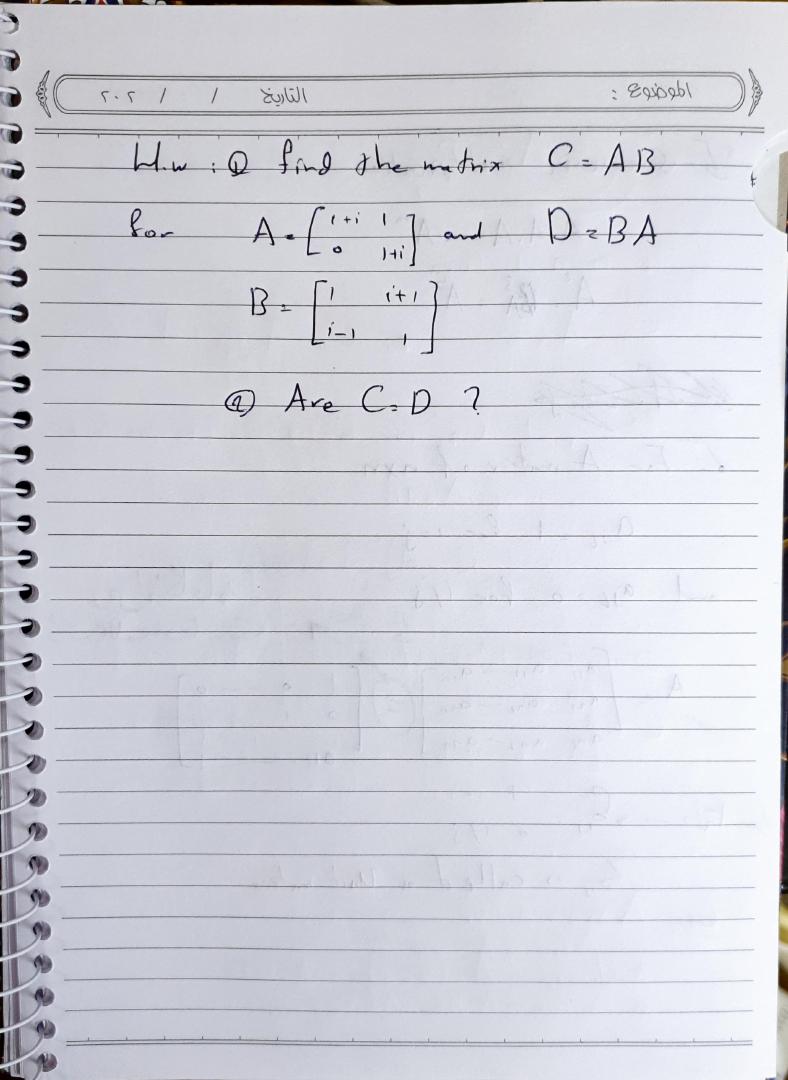 الموضوع : التاريخ / / ٢٠٢
H.w : ① find the matrix C = AB
for A = [1+i 1 and D = BA
0 1+i]
B = [1 i+1
i-1 1]
② Are C = D ?